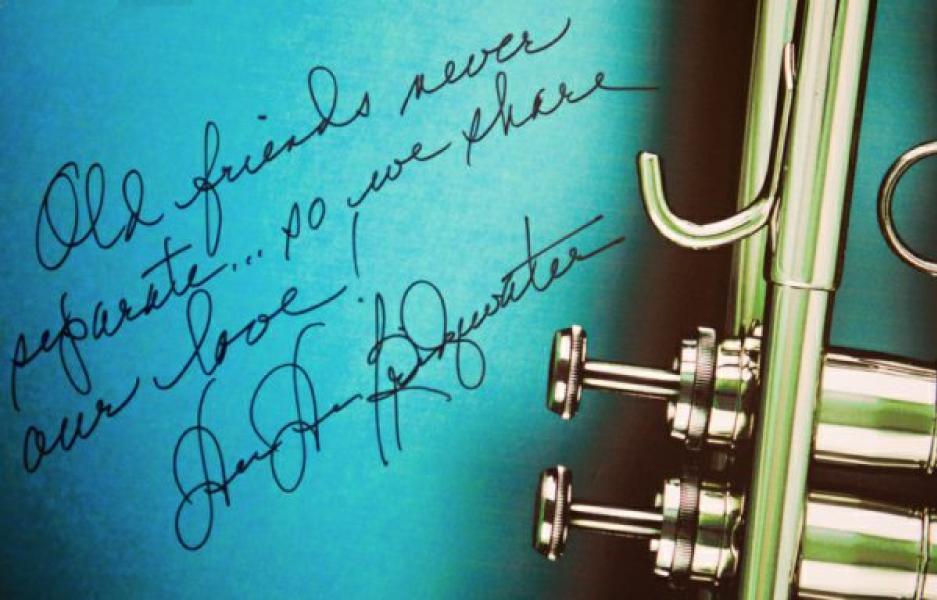 Old friends never
separate... so we share
our love!
Dee Dee Bridgewater